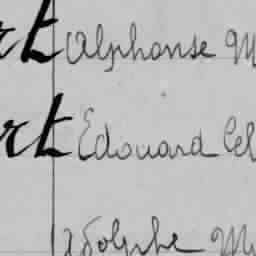 rt Alphonse M
rt Edouard Cel
Adolphe M